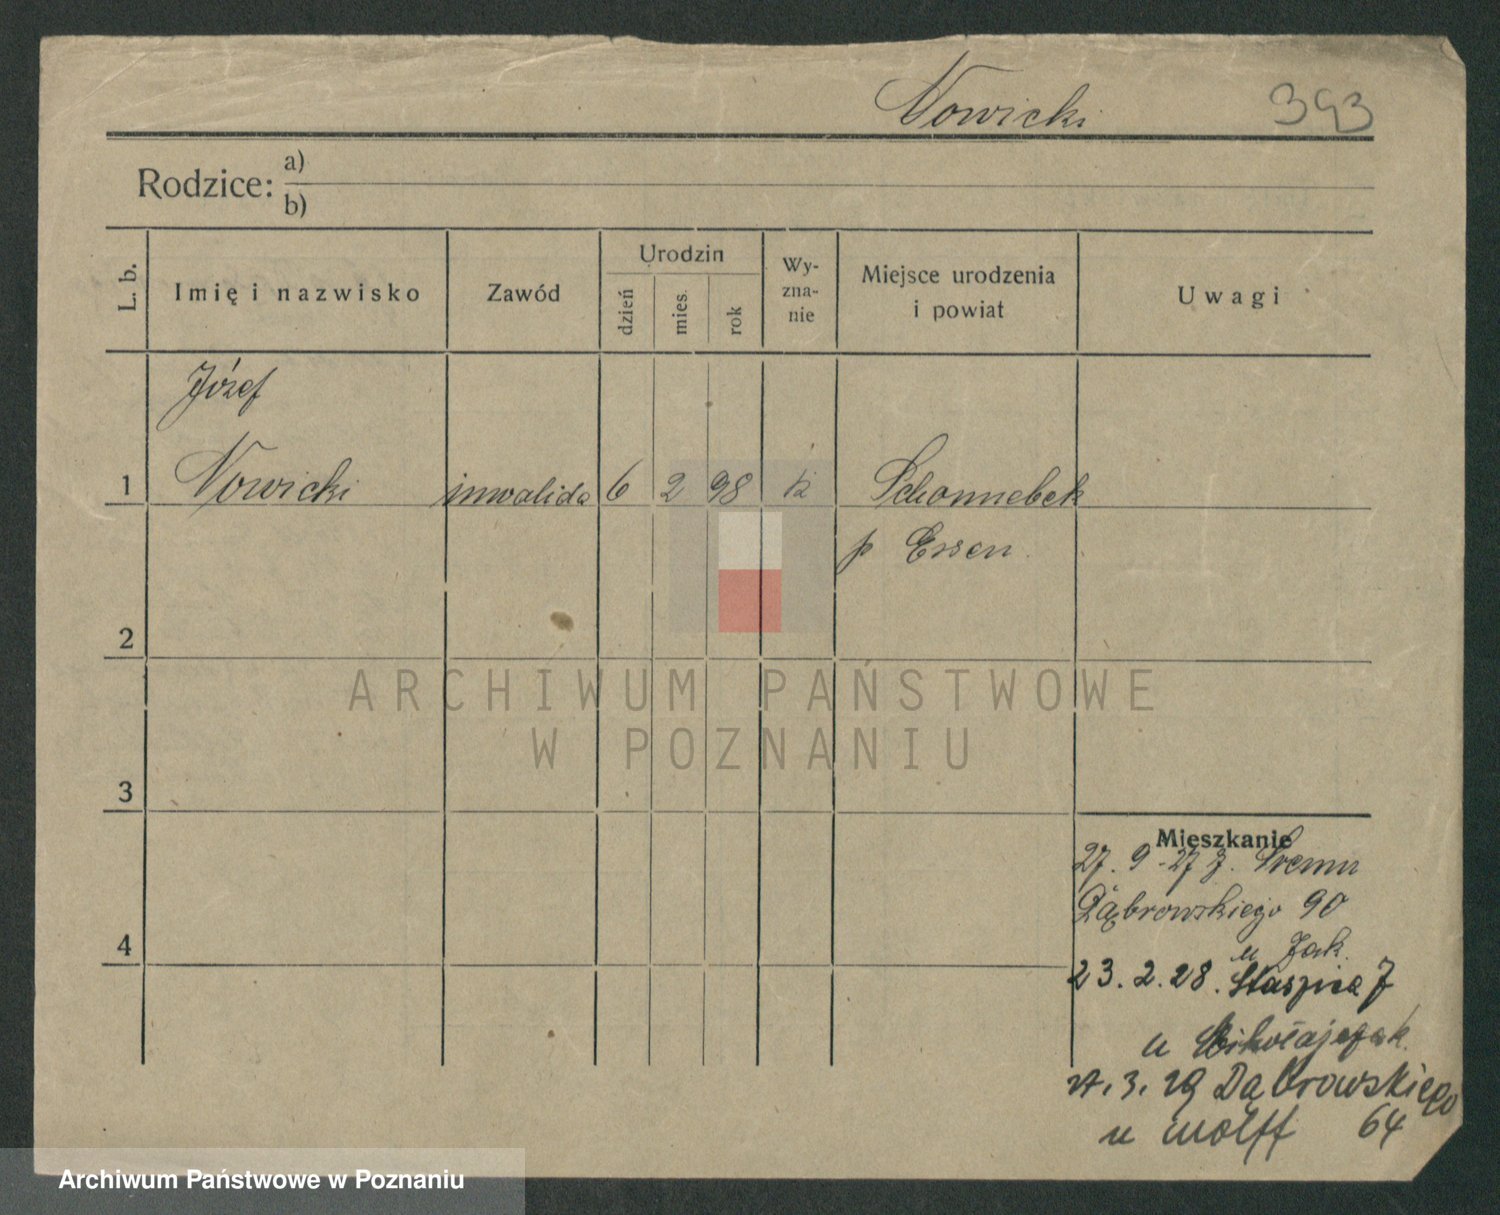 Nowicki 393
Rodzice: a)
b)
L. b. Imię i nazwisko Zawód Urodzin dzień mies. rok Wy-zna-nie Miejsce urodzenia i powiat Uwagi
Józef
1 Nowicki inwalida 6 2 98 k Schonnebek
p Essen
2
ARCHIWUM PAŃSTWOWE
W POZNANIU
3
Mieszkanie
27. 9 - 27 z. Śremu
Dąbrowskiego 90
4
u Jak.
23. 2. 28. Staszica 7
u Mikołajczak
3. 29 Dąbrowskiego
u Wolff 64
Archiwum Państwowe w Poznaniu